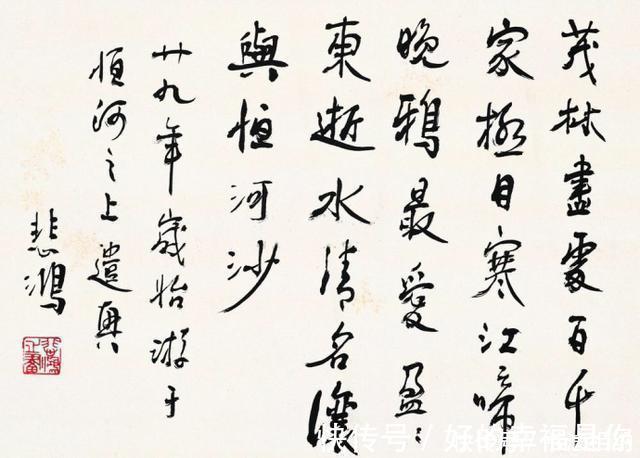 茂林盡處百千
家極目寒江啼
晚鴉最愛盈〻
東逝水清名讓
與恒河沙
廿九年歲游于
恒河之上遣興
悲鴻
快传号 / 好的幸福是你